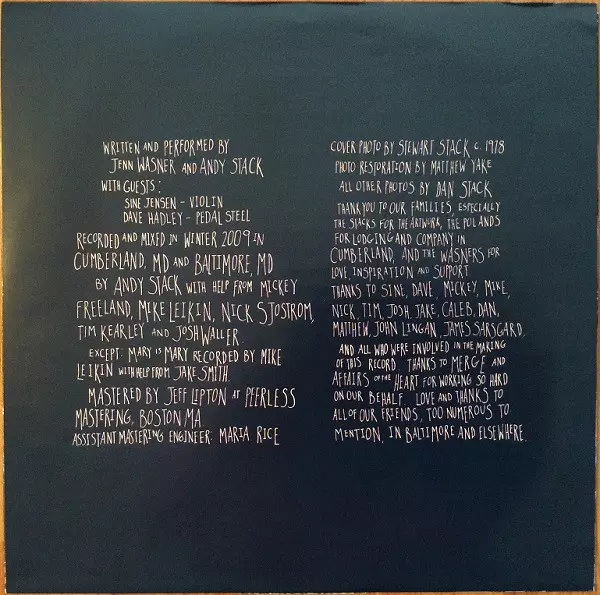 WRITTEN AND PERFORMED BY
JENN WASNER AND ANDY STACK
WITH GUESTS:
SINE JENSEN - VIOLIN
DAVE HADLEY - PEDAL STEEL
RECORDED AND MIXED IN WINTER 2009 IN
CUMBERLAND, MD AND BALTIMORE, MD
BY ANDY STACK WITH HELP FROM MICKEY
FREELAND, MIKE LEIKIN, NICK SJOSTROM,
TIM KEARLEY AND JOSH WALLER.
EXCEPT: MARY IS MARY RECORDED BY MIKE
LEIKIN WITH HELP FROM JAKE SMITH.
MASTERED BY JEFF LIPTON AT PEERLESS
MASTERING, BOSTON MA.
ASSISTANT MASTERING ENGINEER: MARIA RICE
COVER PHOTO BY STEWART STACK c. 1978
PHOTO RESTORATION BY MATTHEW YAKE
ALL OTHER PHOTOS BY DAN STACK
THANK YOU TO OUR FAMILIES, ESPECIALLY
THE STACKS FOR THE ARTWORK, THE POLANDS
FOR LODGING AND COMPANY IN
CUMBERLAND, AND THE WASNERS FOR
LOVE, INSPIRATION AND SUPPORT.
THANKS TO SINE, DAVE, MICKEY, MIKE,
NICK, TIM, JOSH, JAKE, CALEB, DAN,
MATTHEW, JOHN LINGAN, JAMES SARSGARD,
AND ALL WHO WERE INVOLVED IN THE MAKING
OF THIS RECORD. THANKS TO MERGE AND
AFFAIRS OF THE HEART FOR WORKING SO HARD
ON OUR BEHALF. LOVE AND THANKS TO
ALL OF OUR FRIENDS, TOO NUMEROUS TO
MENTION, IN BALTIMORE AND ELSEWHERE.